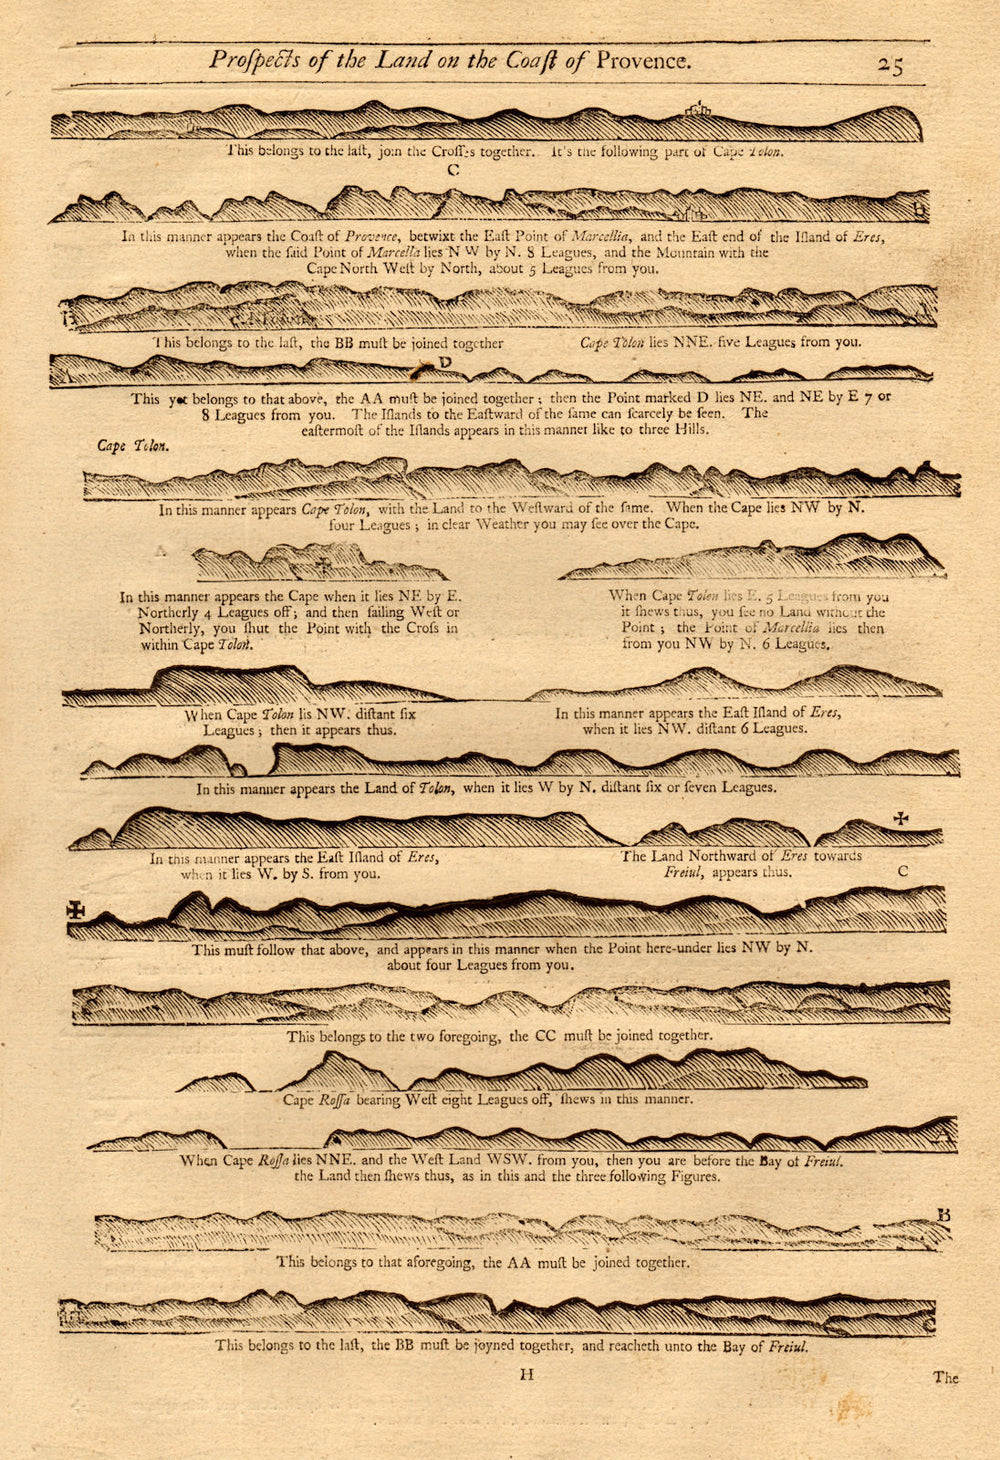 Proſpects of the Land on the Coaſt of Provence. 25
This belongs to the laſt, join the Croſſes together. It's the following part of Cape Tolon.
C
B
In this manner appears the Coaſt of Provence, betwixt the Eaſt Point of Marcellia, and the Eaſt end of the Iſland of Eres,
when the ſaid Point of Marcella lies N W by N. 8 Leagues, and the Mountain with the
Cape North Weſt by North, about 5 Leagues from you.
B A
This belongs to the laſt, the BB muſt be joined together Cape Tolon lies NNE. five Leagues from you.
A D
This yet belongs to that above, the AA muſt be joined together; then the Point marked D lies NE. and NE by E 7 or
8 Leagues from you. The Iſlands to the Eaſtward of the ſame can ſcarcely be ſeen. The
eaſtermoſt of the Iſlands appears in this manner like to three Hills.
Cape Tolon.
In this manner appears Cape Tolon, with the Land to the Weſtward of the ſame. When the Cape lies NW by N.
four Leagues; in clear Weather you may ſee over the Cape.
In this manner appears the Cape when it lies NE by E.
Northerly 4 Leagues off; and then ſailing Weſt or
Northerly, you ſhut the Point with the Croſs in
within Cape Tolon.
When Cape Tolon lies E. 5 Leagues from you
it ſhews thus, you ſee no Land without the
Point; the Point of Marcellia lies then
from you NW by N. 6 Leagues.
When Cape Tolon lis NW. diſtant ſix
Leagues; then it appears thus.
In this manner appears the Eaſt Iſland of Eres,
when it lies NW. diſtant 6 Leagues.
In this manner appears the Land of Tolon, when it lies W by N. diſtant ſix or ſeven Leagues.
In this manner appears the Eaſt Iſland of Eres,
when it lies W. by S. from you.
The Land Northward of Eres towards
Freiul, appears thus.
C
This muſt follow that above, and appears in this manner when the Point here-under lies NW by N.
about four Leagues from you.
This belongs to the two foregoing, the CC muſt be joined together.
Cape Roſſa bearing Weſt eight Leagues off, ſhews in this manner.
A
When Cape Roſſa lies NNE. and the Weſt Land WSW. from you, then you are before the Bay of Freiul.
the Land then ſhews thus, as in this and the three following Figures.
B
This belongs to that aforegoing, the AA muſt be joined together.
B C
This belongs to the laſt, the BB muſt be joyned together, and reacheth unto the Bay of Freiul.
H The